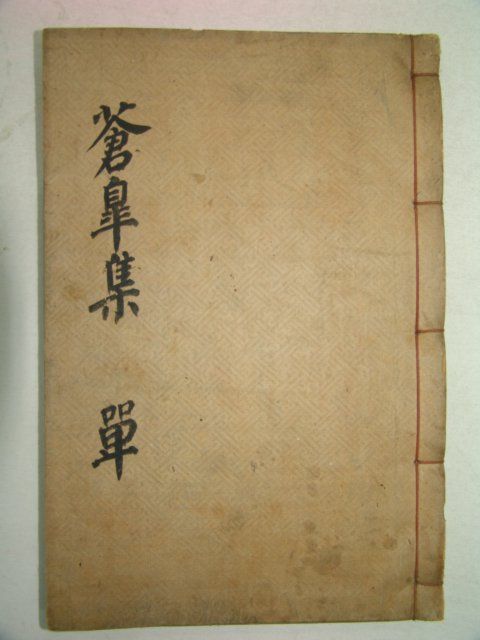 蒼皐集 單